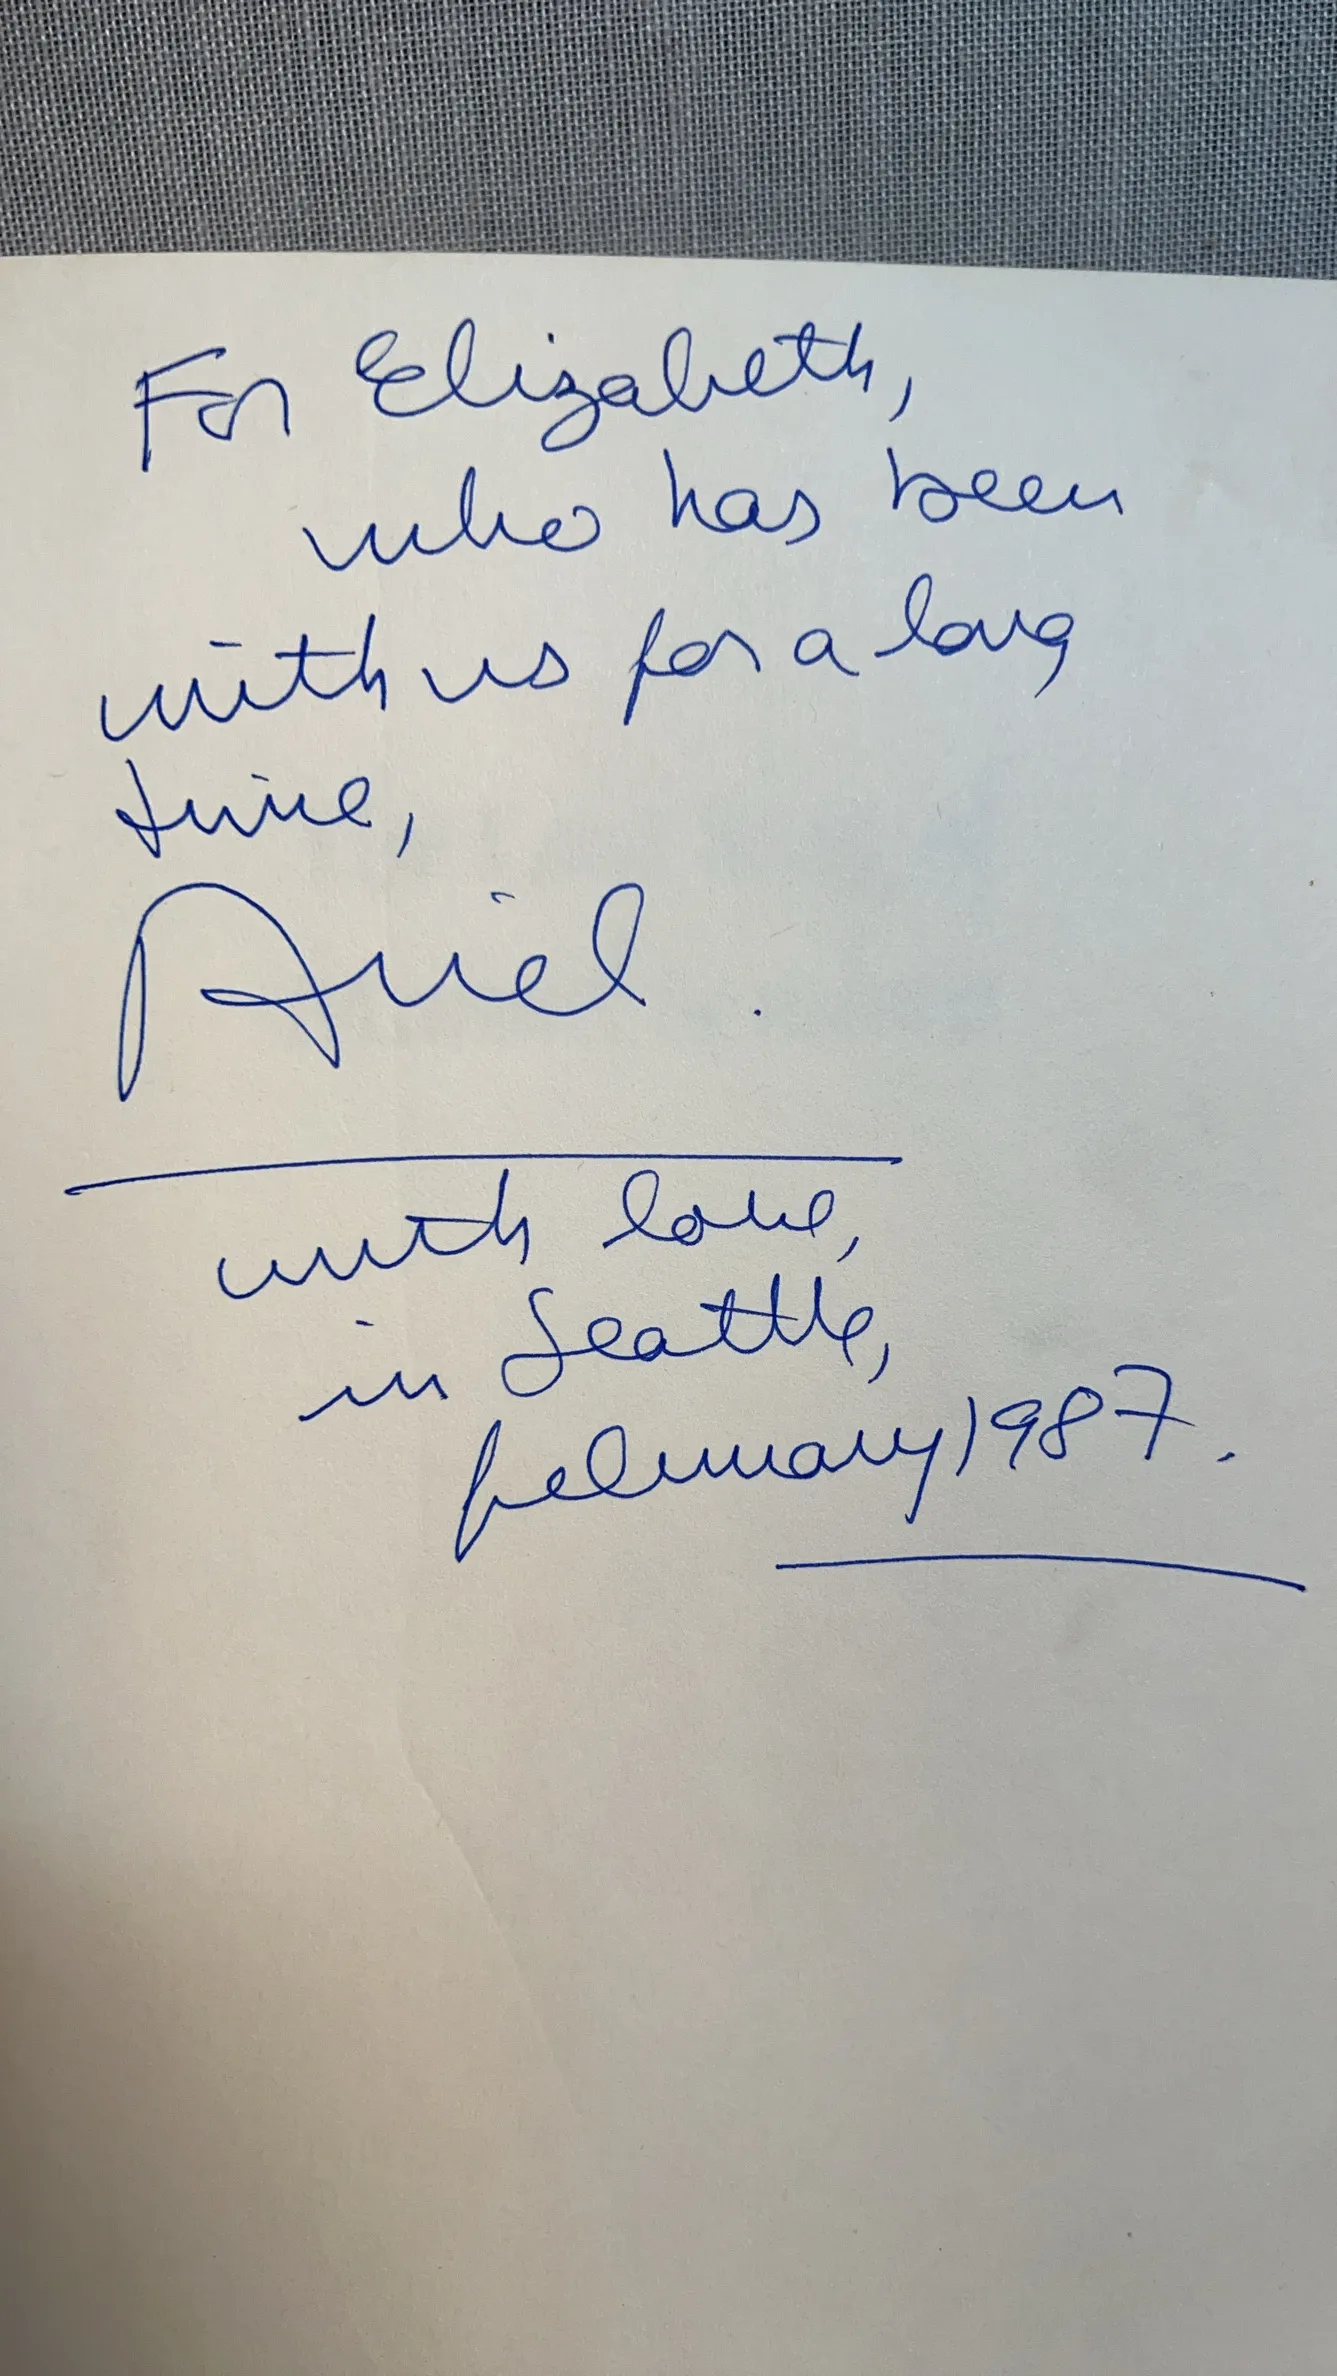 For Elizabeth,
who has been
with us for a long
time,
Ariel.
with love,
in Seattle,
february 1987.